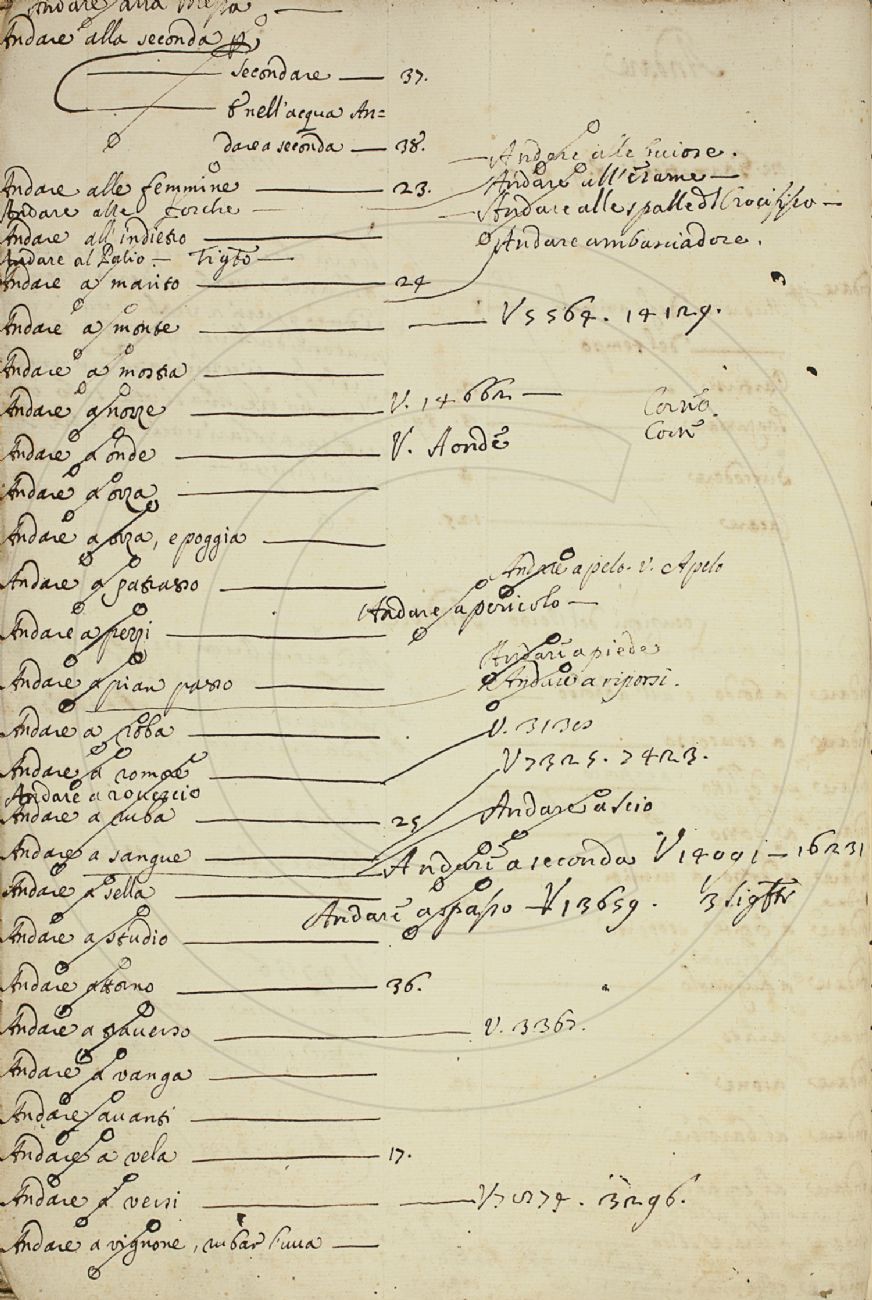 Andare alla
Andare alla seconda
secondare 37.
E nell'acqua An=
dare a seconda 38.
Andare alle
Andare alle femmine 23. Andare all'esame
Andare alle forche Andare alle spalle d Crocifisso
Andare all'indietro Andare ambasciadore.
Andare al Palio
Andare a marito 24
Andare a monte V 5564. 14129.
Andare a mostra
Andare a nozze V. 14662
Andare a onde V. A onde
Andare a orza
Andare a orza, e poggia
Andare a pelo. v. A pelo
Andare a patrasso
Andare a pericolo
Andare a pezzi
Andare a piede
Andare a pian passo Andare a riporsi.
Andare a roba
Andare a rompe V 7325. 7423.
Andare a rovescio
Andare a ruba 25
Andare a scio
Andare a sangue Andare a seconda V 14091 - 16231
Andare a sella
Andare a spasso V 13659.
Andare a studio
Andare attorno 36.
Andare a traverso V. 3365.
Andare a vanga
Andare avanti
Andare a vela 17.
Andare a versi 3296.
Andare a vignone, rubar l'uva